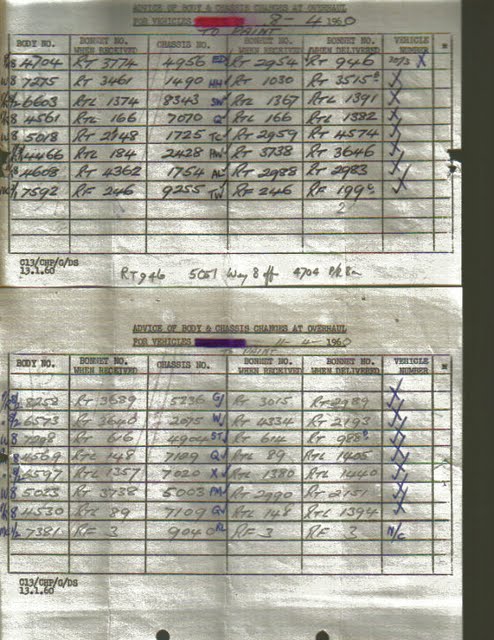 ADVICE OF BODY & CHASSIS CHANGES AT OVERHAUL
FOR VEHICLES 8-4 1960
TO PAINT
BODY NO. BONNET NO. WHEN RECEIVED CHASSIS NO. BONNET NO. WHEN RECEIVED BONNET NO. WHEN DELIVERED VEHICLE NUMBER
4704 RT 3774 4956 ED RT 2954 RT 946
W8 7275 RT 3461 1490 HH RT 1030 RT 3515
6603 RTL 1374 8343 SW RTL 1367 RTL 1391
4561 RTL 166 7070 Q RTL 166 RTL 1382
W8 5018 1725 TC RT 2959 RT 4574
4466 RTL 184 2428 RT 3738 RT 3646
4608 RT 4362 1754 AL RT 2988 RT 2983
7592 RF 246 9255 TW RF 246
C13/CHP/G/DS
13.1.60
RT 946 5051 Way 8 off 4704
ADVICE OF BODY & CHASSIS CHANGES AT OVERHAUL
FOR VEHICLES 11-4 1960
TO PAINT
BODY NO. BONNET NO. WHEN RECEIVED CHASSIS NO. BONNET NO. WHEN RECEIVED BONNET NO. WHEN DELIVERED VEHICLE NUMBER
8252 RT 3689 5336 GJ RT 3015 RT 2989
6573 RT 3640 2075 W RT 4834 RT 2193
W8 7298 RT 616 4904 ST RT 614 RT 988
4569 RTL 148 7109 QV RTL 89 RTL 1405
4597 RTL 1357 7020 X RTL 1380 RTL 1440
W8 5023 RT 3738 5003 RT 2990 RT 2151
4530 RTL 89 7109 QV RTL 148 RTL 1394
7381 RF 3 9040 RL RF 3 RF 3 N/C
C13/CHP/G/DS
13.1.60